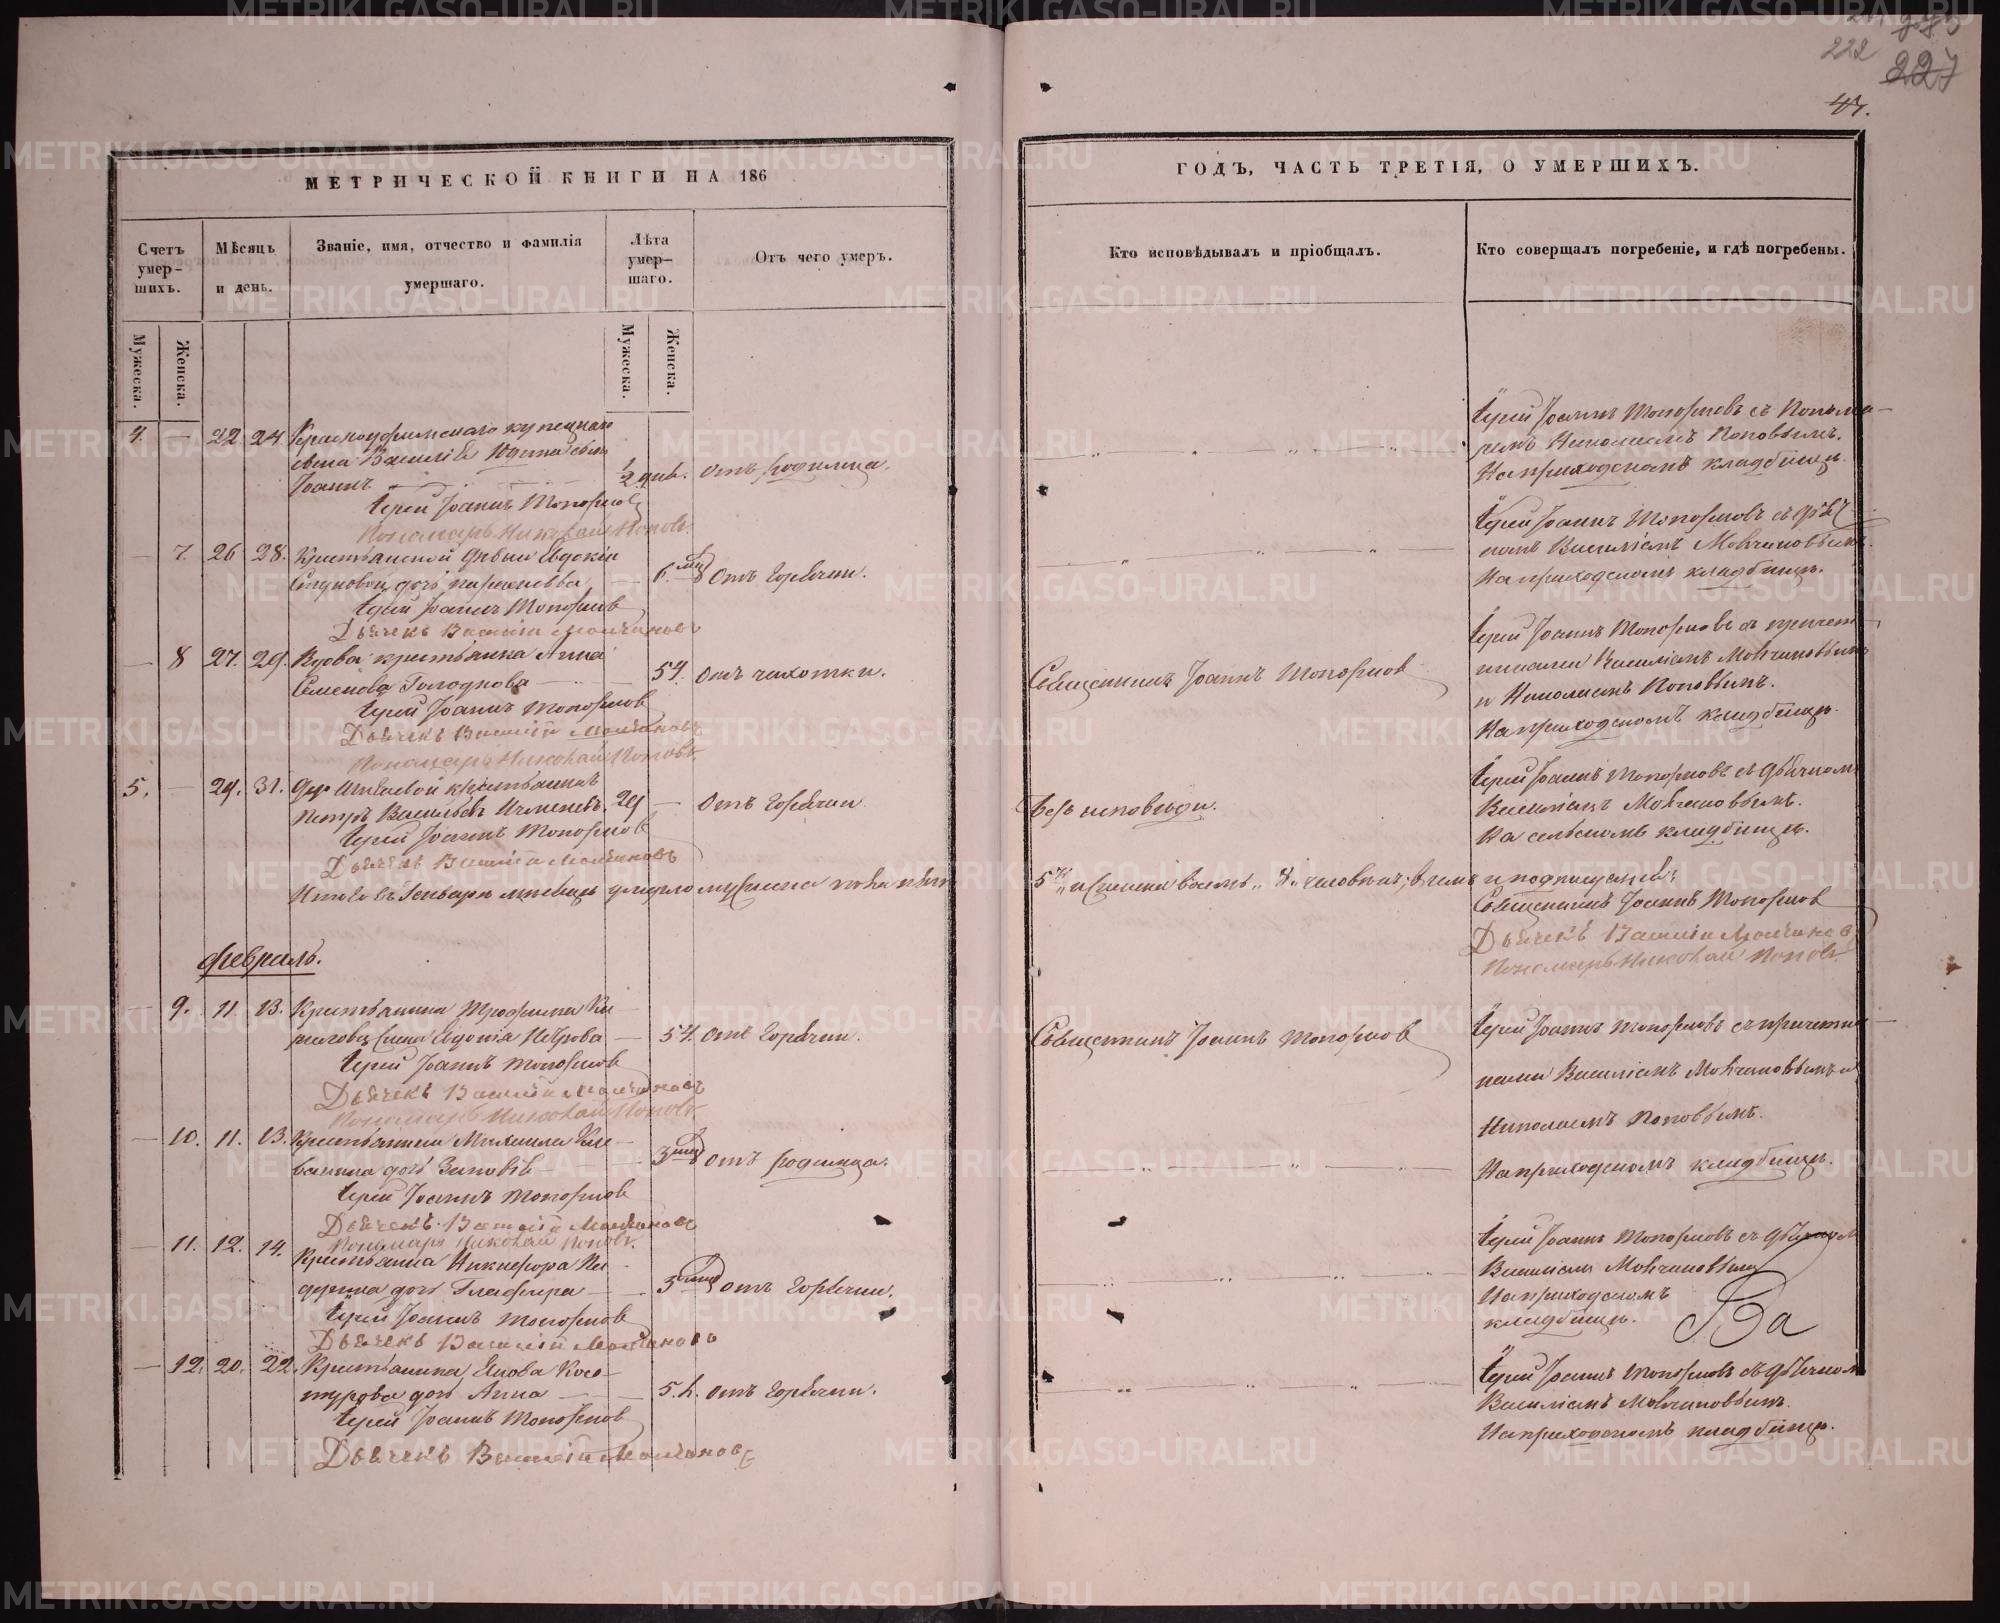 222
227
47.
МЕТРИЧЕСКОЙ КНИГИ НА 186
ГОДЪ, ЧАСТЬ ТРЕТІЯ, О УМЕРШИХЪ.
Счетъ умер-шихъ.
Мѣсяцъ и день.
Званіе, имя, отчество и фамилія умершаго.
Лѣта умер-шаго.
Отъ чего умеръ.
Кто исповѣдывалъ и пріобщалъ.
Кто совершалъ погребеніе, и гдѣ погребены.
Мужеска.
Женска.
Мужеска.
Женска.
4. — 22 24. Красноуфимскаго
сына Василія сынъ
Іоаннъ 1/2 отъ родимца.
Іерей Іоаннъ Топорковъ
Пономарь Николай Поповъ.
Іерей Іоаннъ Топорковъ съ Понома-
ремъ Николаемъ Поповымъ.
На приходскомъ кладбищѣ.
— 7. 26 28. Крестьянской дѣвки Евдокіи
дочь 6. мѣс отъ горячки.
Іерей Іоаннъ Топорковъ
Дьячекъ Василій Молчановъ
Іерей Іоаннъ Топорковъ съ дьяч-
комъ Василіемъ Молчановымъ.
На приходскомъ кладбищѣ.
— 8 27. 29. Вдова крестьянка Анна
Семенова Голоднова 54. отъ чахотки.
Іерей Іоаннъ Топорковъ
Дьячекъ Василій Молчановъ
Пономарь Николай Поповъ.
Священникъ Іоаннъ Топорковъ
Іерей Іоаннъ Топорковъ съ причет-
никами Василіемъ Молчановымъ
и Николаемъ Поповымъ.
На приходскомъ кладбищѣ.
5. — 29. 31. дер. крестьянинъ
Петръ Васильевъ 29 — отъ горячки
Іерей Іоаннъ Топорковъ
Дьячекъ Василій Молчановъ
Безъ исповѣди.
Іерей Іоаннъ Топорковъ съ дьячкомъ
Василіемъ Молчановымъ.
На сельскомъ кладбищѣ.
Итого въ Генварѣ мѣсяцѣ умерло мужеска пола пять
5 и женска восемь 8 человѣкъ; въ чемъ и подписуемся:
Священникъ Іоаннъ Топорковъ
Дьячекъ Василій Молчановъ
Пономарь Николай Поповъ.
Февраль.
— 9. 11. 13. Крестьянина Трофима
жена Евдокія Петрова — 54. отъ горячки.
Іерей Іоаннъ Топорковъ
Дьячекъ Василій Молчановъ
Пономарь Николай Поповъ
Священникъ Іоаннъ Топорковъ
Іерей Іоаннъ Топорковъ съ причетни-
ками Василіемъ Молчановымъ и
Николаемъ Поповымъ.
На приходскомъ кладбищѣ.
— 10. 11. 13. Крестьянина Михаила
дочь Зиновія 3 мѣс отъ родимца.
Іерей Іоаннъ Топорковъ
Дьячекъ Василій Молчановъ
Пономарь Николай Поповъ.
— 11. 12. 14. Крестьянина Никифора
дочь Глафира 5 отъ горячки.
Іерей Іоаннъ Топорковъ
Дьячекъ Василій Молчановъ
Іерей Іоаннъ Топорковъ съ дьячкомъ
Василіемъ Молчановымъ
На приходскомъ
кладбищѣ.
— 12. 20. 22. Крестьянина Якова Косо-
турова дочь Анна — 5. л. отъ горячки.
Іерей Іоаннъ Топорковъ
Дьячекъ Василій Молчановъ
Іерей Іоаннъ Топорковъ съ дьячкомъ
Василіемъ Молчановымъ.
На приходскомъ кладбищѣ.
METRIKI.GASO-URAL.RU